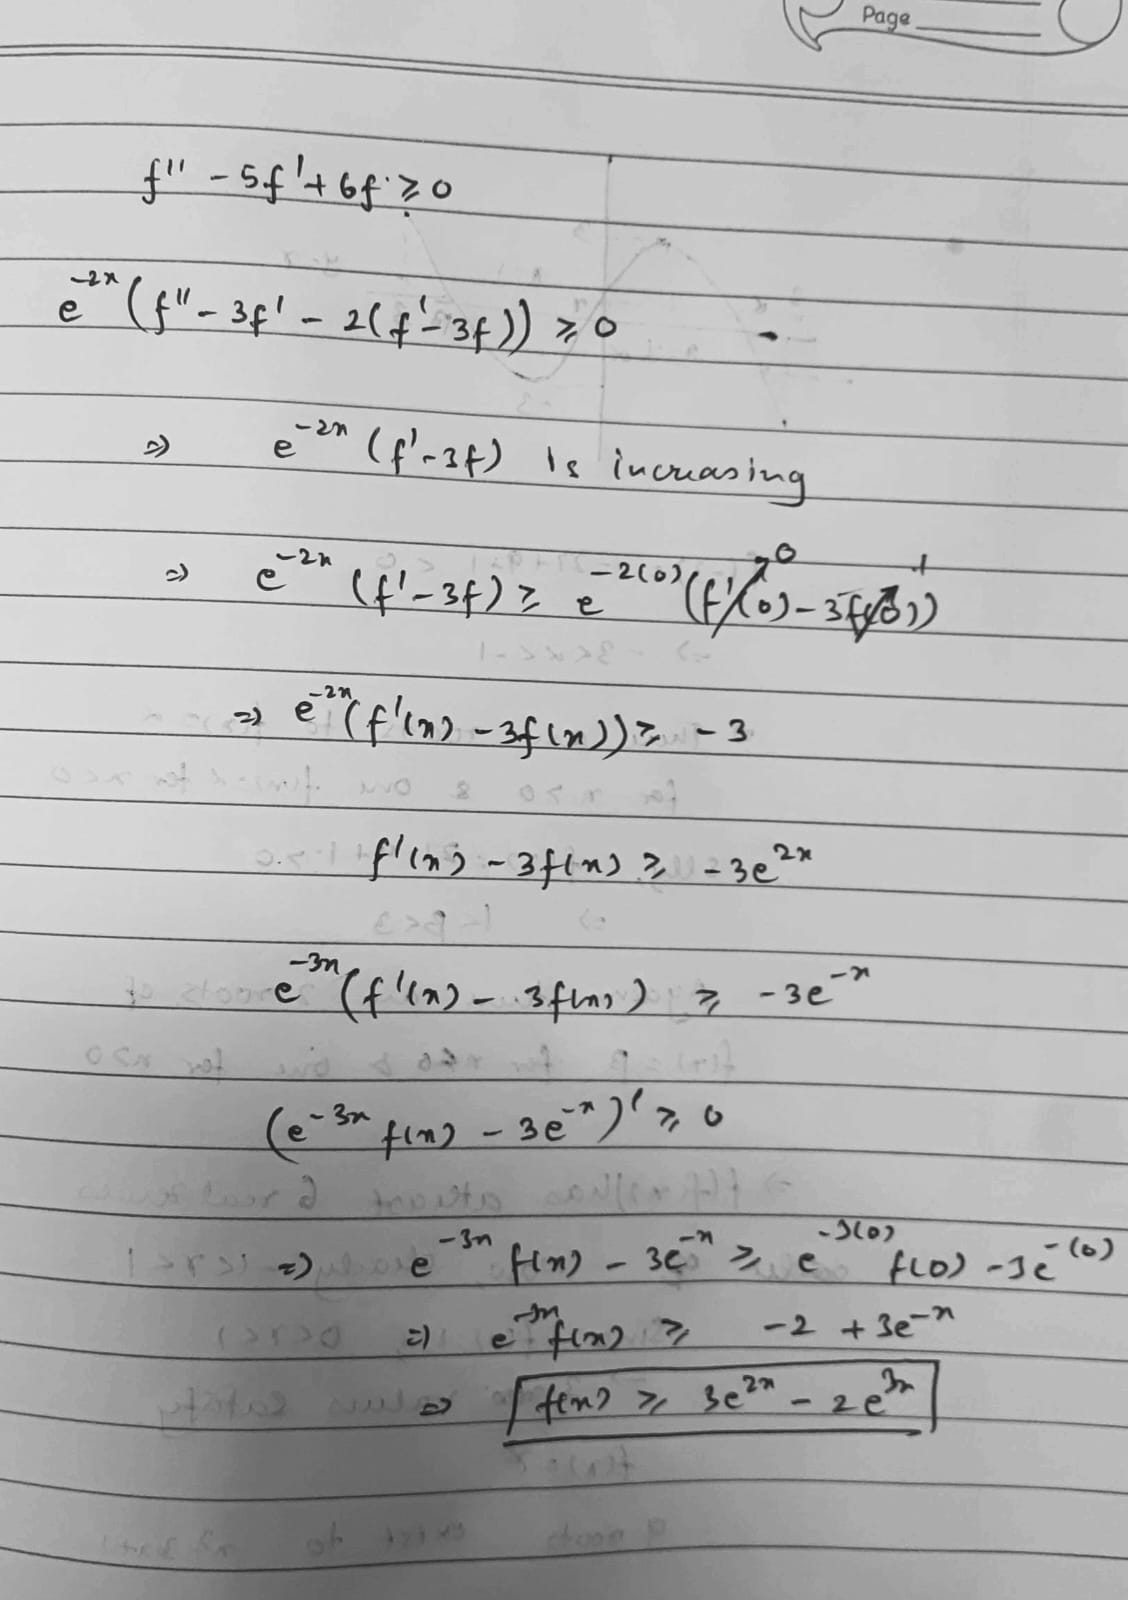 Page
f'' - 5f' + 6f ≥ 0
e^{-2x} (f'' - 3f' - 2(f' - 3f)) ≥ 0
⇒ e^{-2x} (f' - 3f) is increasing
⇒ e^{-2x} (f' - 3f) ≥ e^{-2(0)} (f'(0) - 3f(0)) 0 1
⇒ e^{-2x} (f'(x) - 3f(x)) ≥ -3
f'(x) - 3f(x) ≥ -3e^{2x}
e^{-3x} (f'(x) - 3f(x)) ≥ -3e^{-x}
(e^{-3x} f(x) - 3e^{-x})' ≥ 0
⇒ e^{-3x} f(x) - 3e^{-x} ≥ e^{-3(0)} f(0) - 3e^{-(0)}
⇒ e^{-3x} f(x) ≥ -2 + 3e^{-x}
⇒ f(x) ≥ 3e^{2x} - 2e^{3x}